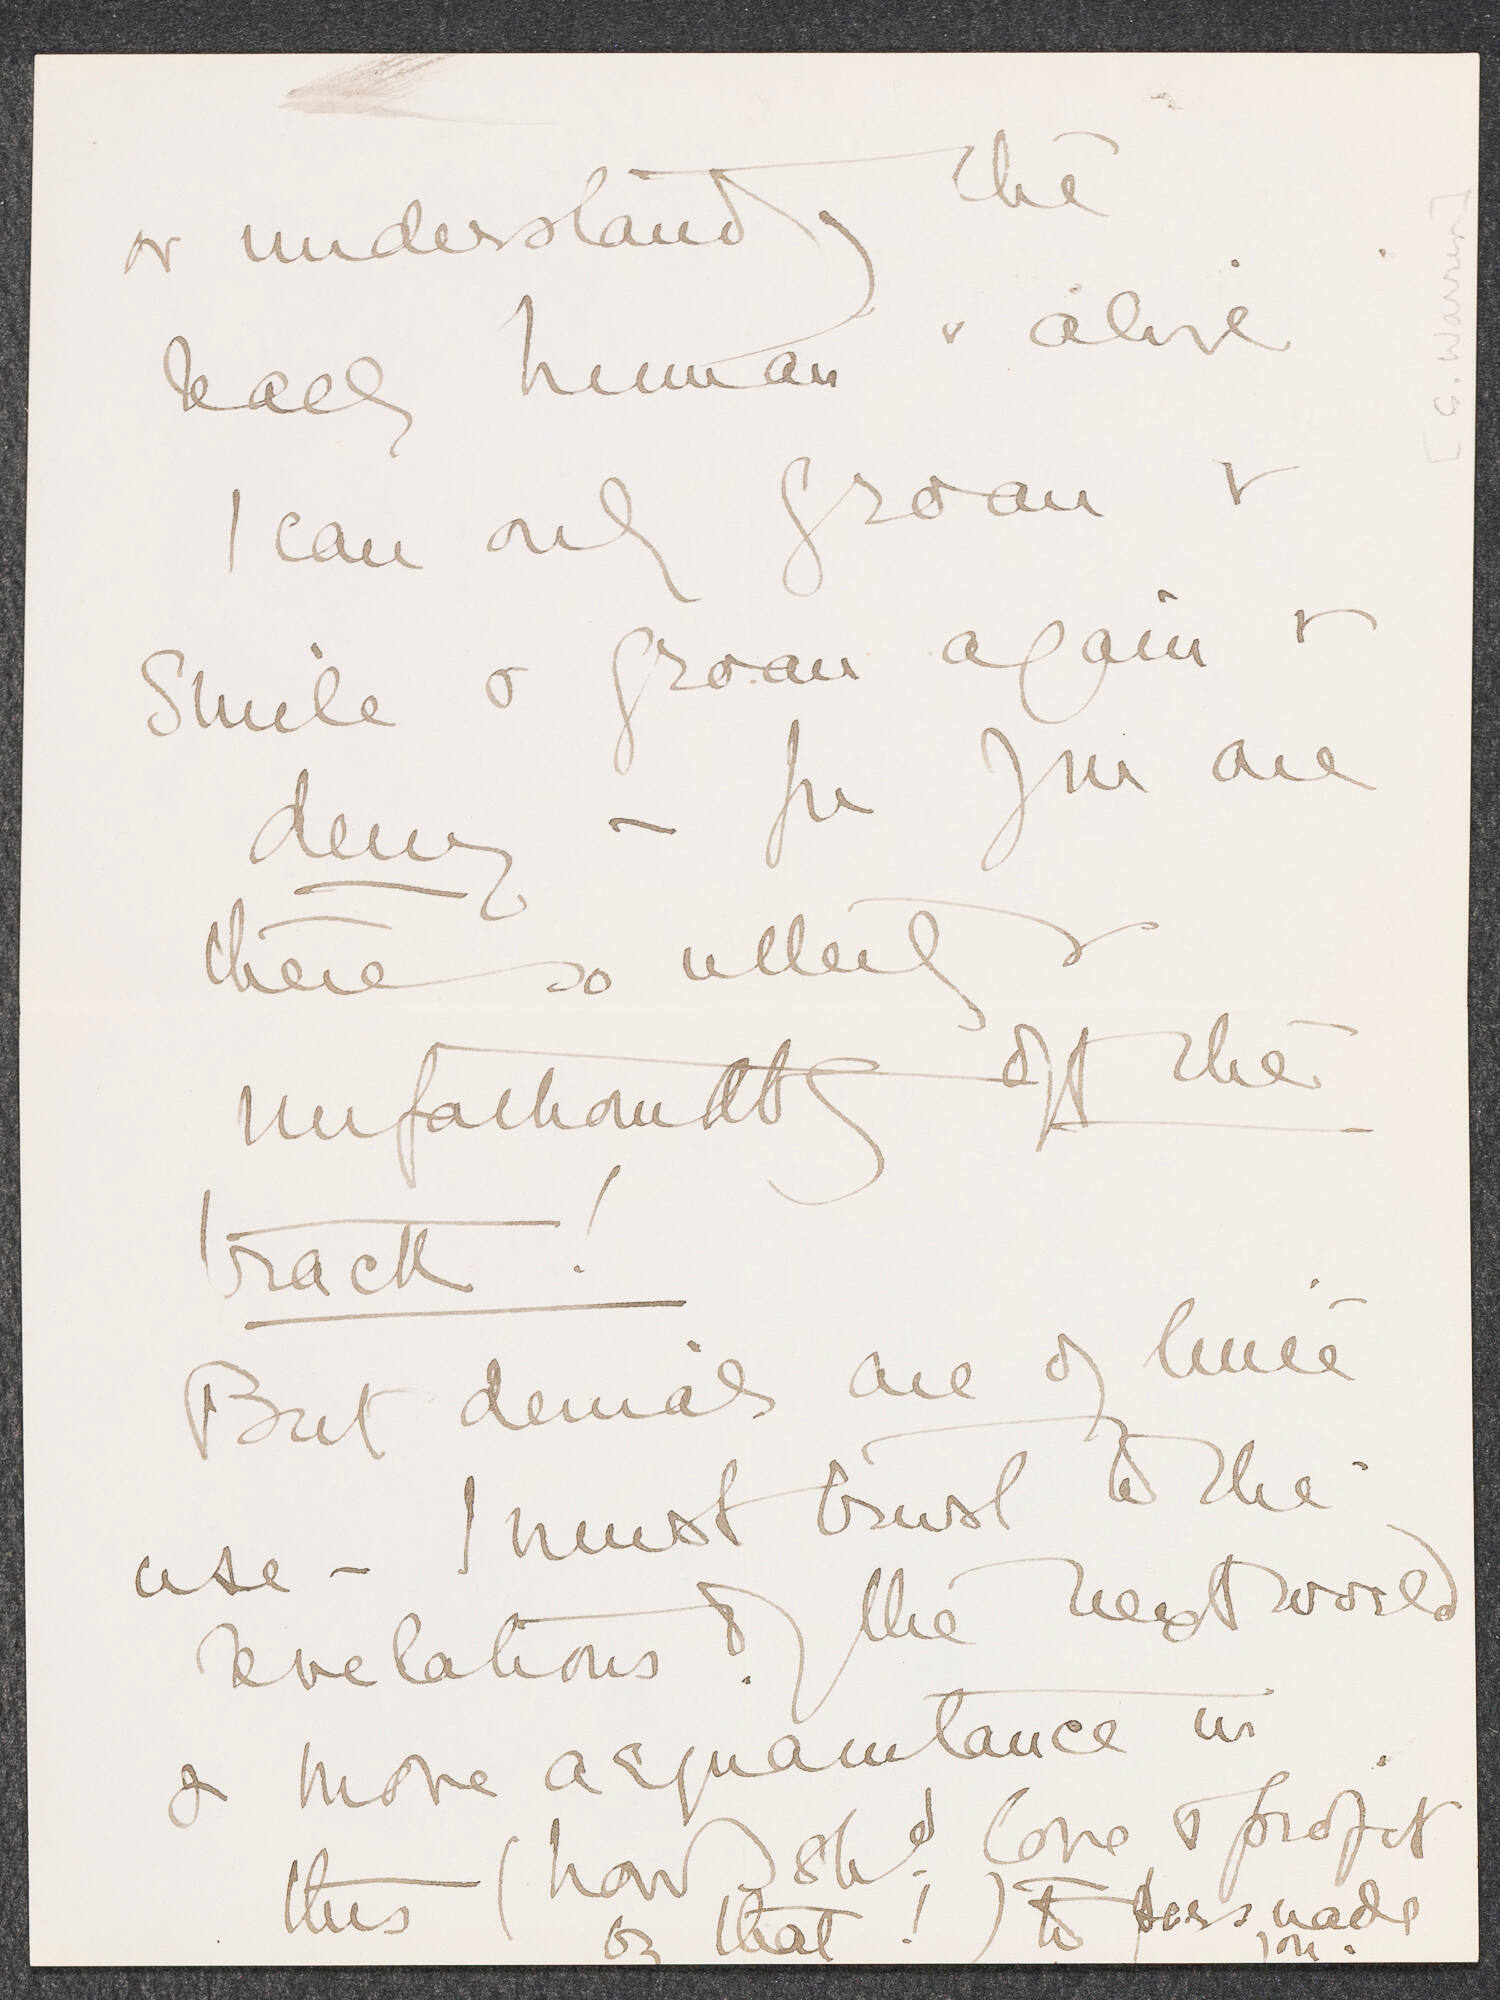 or understand, the
really human & alive
I can only groan &
smile & groan again &
deny – for you are
there so utterly &
unfathomably off the
track!
But denials are of little
use – I must trust to the
revelations of the next world
& more acquaintance in
this (how I sh<sup>d</sup> love & profit
by that!) to persuade
you.
[G. Warren]